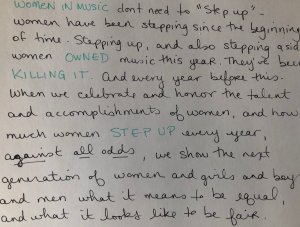 WOMEN IN MUSIC dont need to "step up"-
women have been stepping since the beginning
of time. Stepping up, and also stepping asid
women OWNED music this year. They've bee
KILLING IT. And every year before this.
When we celebrate and honor the talent
and accomplishments of women, and how
much women STEP UP every year,
against all odds, we show the next
generation of women and girls and boy
and men what it means to be equal,
and what it looks like to be fair.